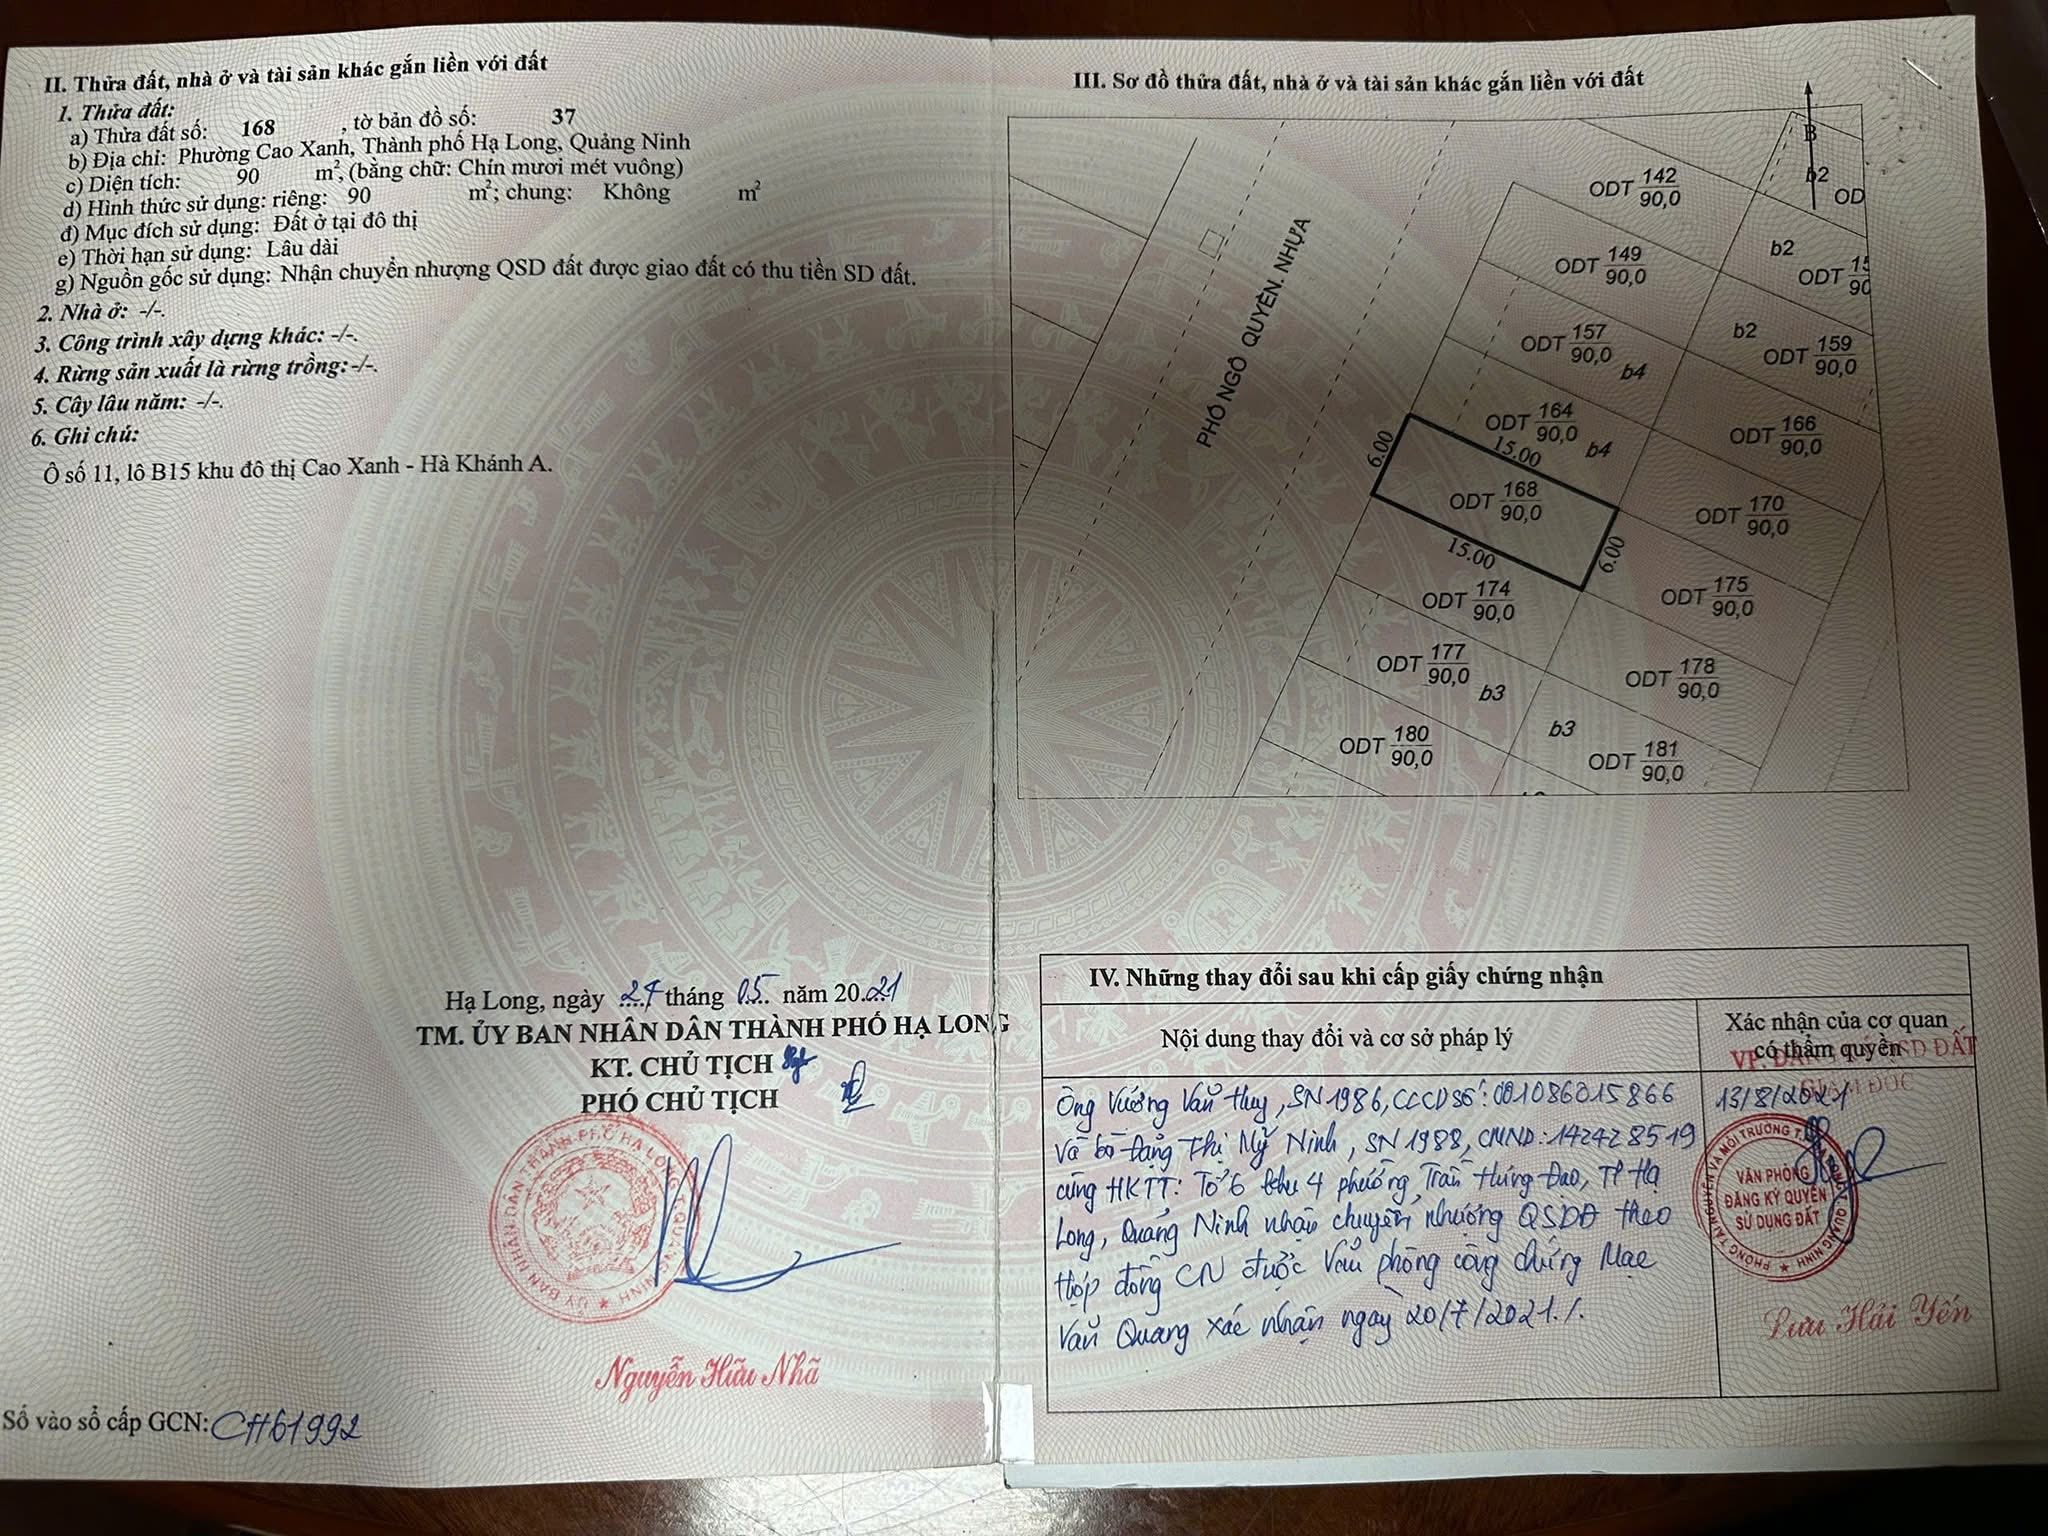 II. Thửa đất, nhà ở và tài sản khác gắn liền với đất
1. Thửa đất:
a) Thửa đất số: 168 , tờ bản đồ số: 37
b) Địa chỉ: Phường Cao Xanh, Thành phố Hạ Long, Quảng Ninh
c) Diện tích: 90 m², (bằng chữ: Chín mươi mét vuông)
d) Hình thức sử dụng: riêng: 90 m²; chung: Không m²
đ) Mục đích sử dụng: Đất ở tại đô thị
e) Thời hạn sử dụng: Lâu dài
g) Nguồn gốc sử dụng: Nhận chuyển nhượng QSD đất được giao đất có thu tiền SD đất.
2. Nhà ở: -/-.
3. Công trình xây dựng khác: -/-.
4. Rừng sản xuất là rừng trồng:-/-.
5. Cây lâu năm: -/-.
6. Ghi chú:
Ô số 11, lô B15 khu đô thị Cao Xanh - Hà Khánh A.
Hạ Long, ngày 27 tháng 05 năm 2021
TM. ỦY BAN NHÂN DÂN THÀNH PHỐ HẠ LONG
KT. CHỦ TỊCH
PHÓ CHỦ TỊCH
ỦY BAN NHÂN DÂN THÀNH PHỐ HẠ LONG T. QUẢNG NINH
Nguyễn Hữu Nhã
Số vào sổ cấp GCN: CH61992
III. Sơ đồ thửa đất, nhà ở và tài sản khác gắn liền với đất
B
PHỐ NGÔ QUYỀN. NHỰA
ODT 142
90,0
b2
OD
ODT 149
90,0
b2
ODT 15
90
ODT 157
90,0
b4
b2
ODT 159
90,0
ODT 164
90,0
b4
ODT 166
90,0
6.00
15.00
ODT 168
90,0
15.00
6.00
ODT 170
90,0
ODT 174
90,0
ODT 175
90,0
ODT 177
90,0
b3
ODT 178
90,0
ODT 180
90,0
b3
ODT 181
90,0
IV. Những thay đổi sau khi cấp giấy chứng nhận
Nội dung thay đổi và cơ sở pháp lý
Xác nhận của cơ quan
có thẩm quyền
VP. ĐĂNG KÝ QSD ĐẤT
GIÁM ĐỐC
Ông Vương Văn Huy, SN 1986, CCCD số: 001086015866
Và bà Đặng Thị Mỹ Ninh, SN 1988, CMND: 142428519
cùng HKTT: Tổ 6 khu 4 phường Trần Hưng Đạo, TP Hạ
Long, Quảng Ninh nhận chuyển nhượng QSDĐ theo
Hợp đồng CN được Văn phòng công chứng Mạc
Văn Quang xác nhận ngày 20/7/2021./.
13/8/2021
PHÒNG TÀI NGUYÊN VÀ MÔI TRƯỜNG T.P HẠ LONG T. QUẢNG NINH
VĂN PHÒNG
ĐĂNG KÝ QUYỀN
SỬ DỤNG ĐẤT
Lưu Hải Yến